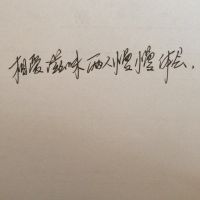 相爱滋味两人慢慢体会.